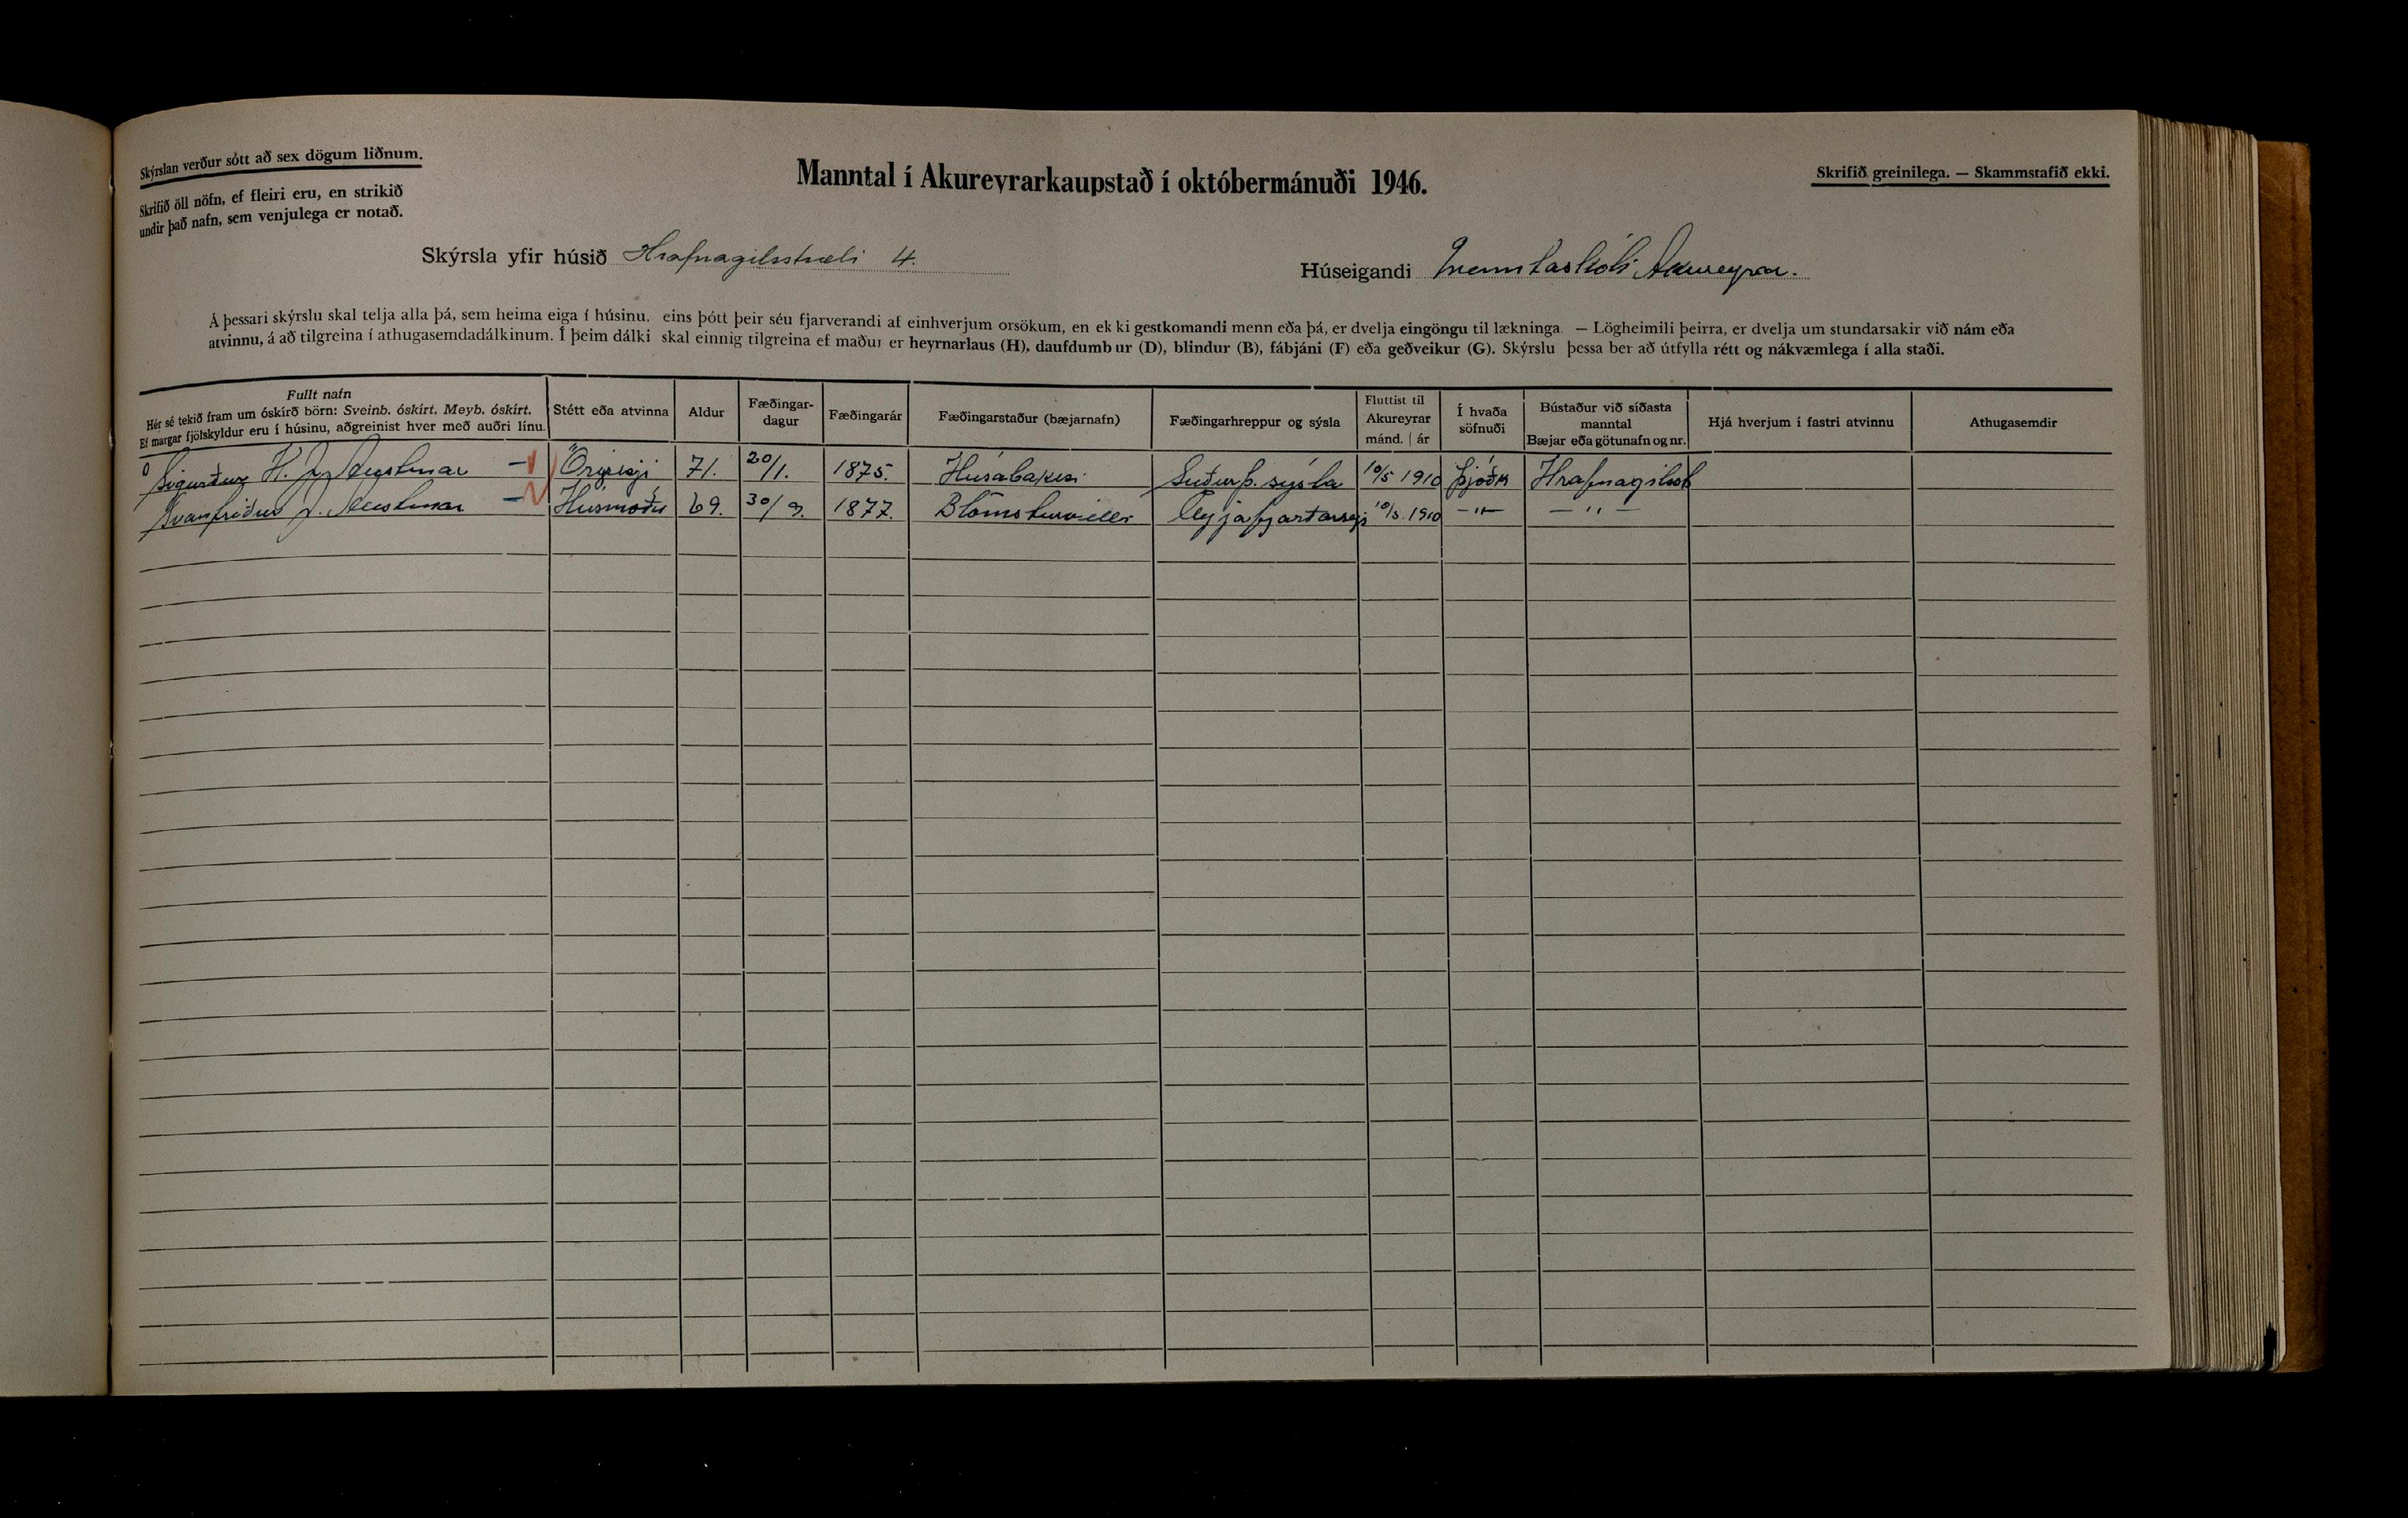 Skýrslan verður sótt að sex dögum liðnum.
Skrifið öll nöfn, ef fleiri eru, en strikið
undir það nafn, sem venjulega er notað.
Manntal í Akureyrarkaupstað í októbermánuði 1946.
Skrifið greinilega. — Skammstafið ekki.
Skýrsla yfir húsið Hrafnagilsstræti 4.
Húseigandi Menntaskóli Akureyrar.
Á þessari skýrslu skal telja alla þá, sem heima eiga í húsinu, eins þótt þeir séu fjarverandi af einhverjum orsökum, en ekki gestkomandi menn eða þá, er dvelja eingöngu til lækninga. — Lögheimili þeirra, er dvelja um stundarsakir við nám eða
atvinnu, á að tilgreina í athugasemdadálkinum. Í þeim dálki skal einnig tilgreina ef maður er heyrnarlaus (H), daufdumbur (D), blindur (B), fábjáni (F) eða geðveikur (G). Skýrslu þessa ber að útfylla rétt og nákvæmlega í alla staði.
Fullt nafn
Hér sé tekið fram um óskírð börn: Sveinb. óskírt. Meyb. óskírt.
Ef margar fjölskyldur eru í húsinu, aðgreinist hver með auðri línu.
Stétt eða atvinna
Aldur
Fæðingar-
dagur
Fæðingarár
Fæðingarstaður (bæjarnafn)
Fæðingarhreppur og sýsla
Fluttist til
Akureyrar
mánd. | ár
Í hvaða
söfnuði
Bústaður við síðasta
manntal
Bæjar eða götunafn og nr.
Hjá hverjum í fastri atvinnu
Athugasemdir
Sigurður H. 71. 20/1. 1875. Húsabakki Suðurþ. sýsla 10/5 1910 Þjóðk Hrafnagilsst
Svanfríður J. Húsmóðir 69. 30/9. 1877. Blómsturvellir Eyjafjarðars 10/5. 1910 — " — — " —